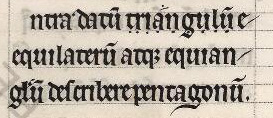 ntra datū triangulū e
equilaterū atqꝫ equian/
glū describere pentagonū.